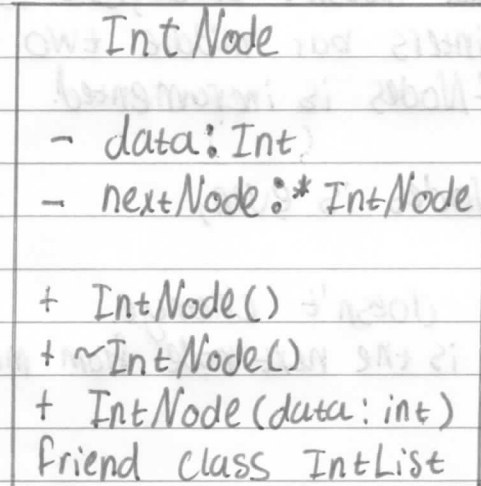 IntNode
- data: Int
- nextNode:* IntNode
+ IntNode()
+ ~IntNode()
+ IntNode(data: int)
friend class IntList